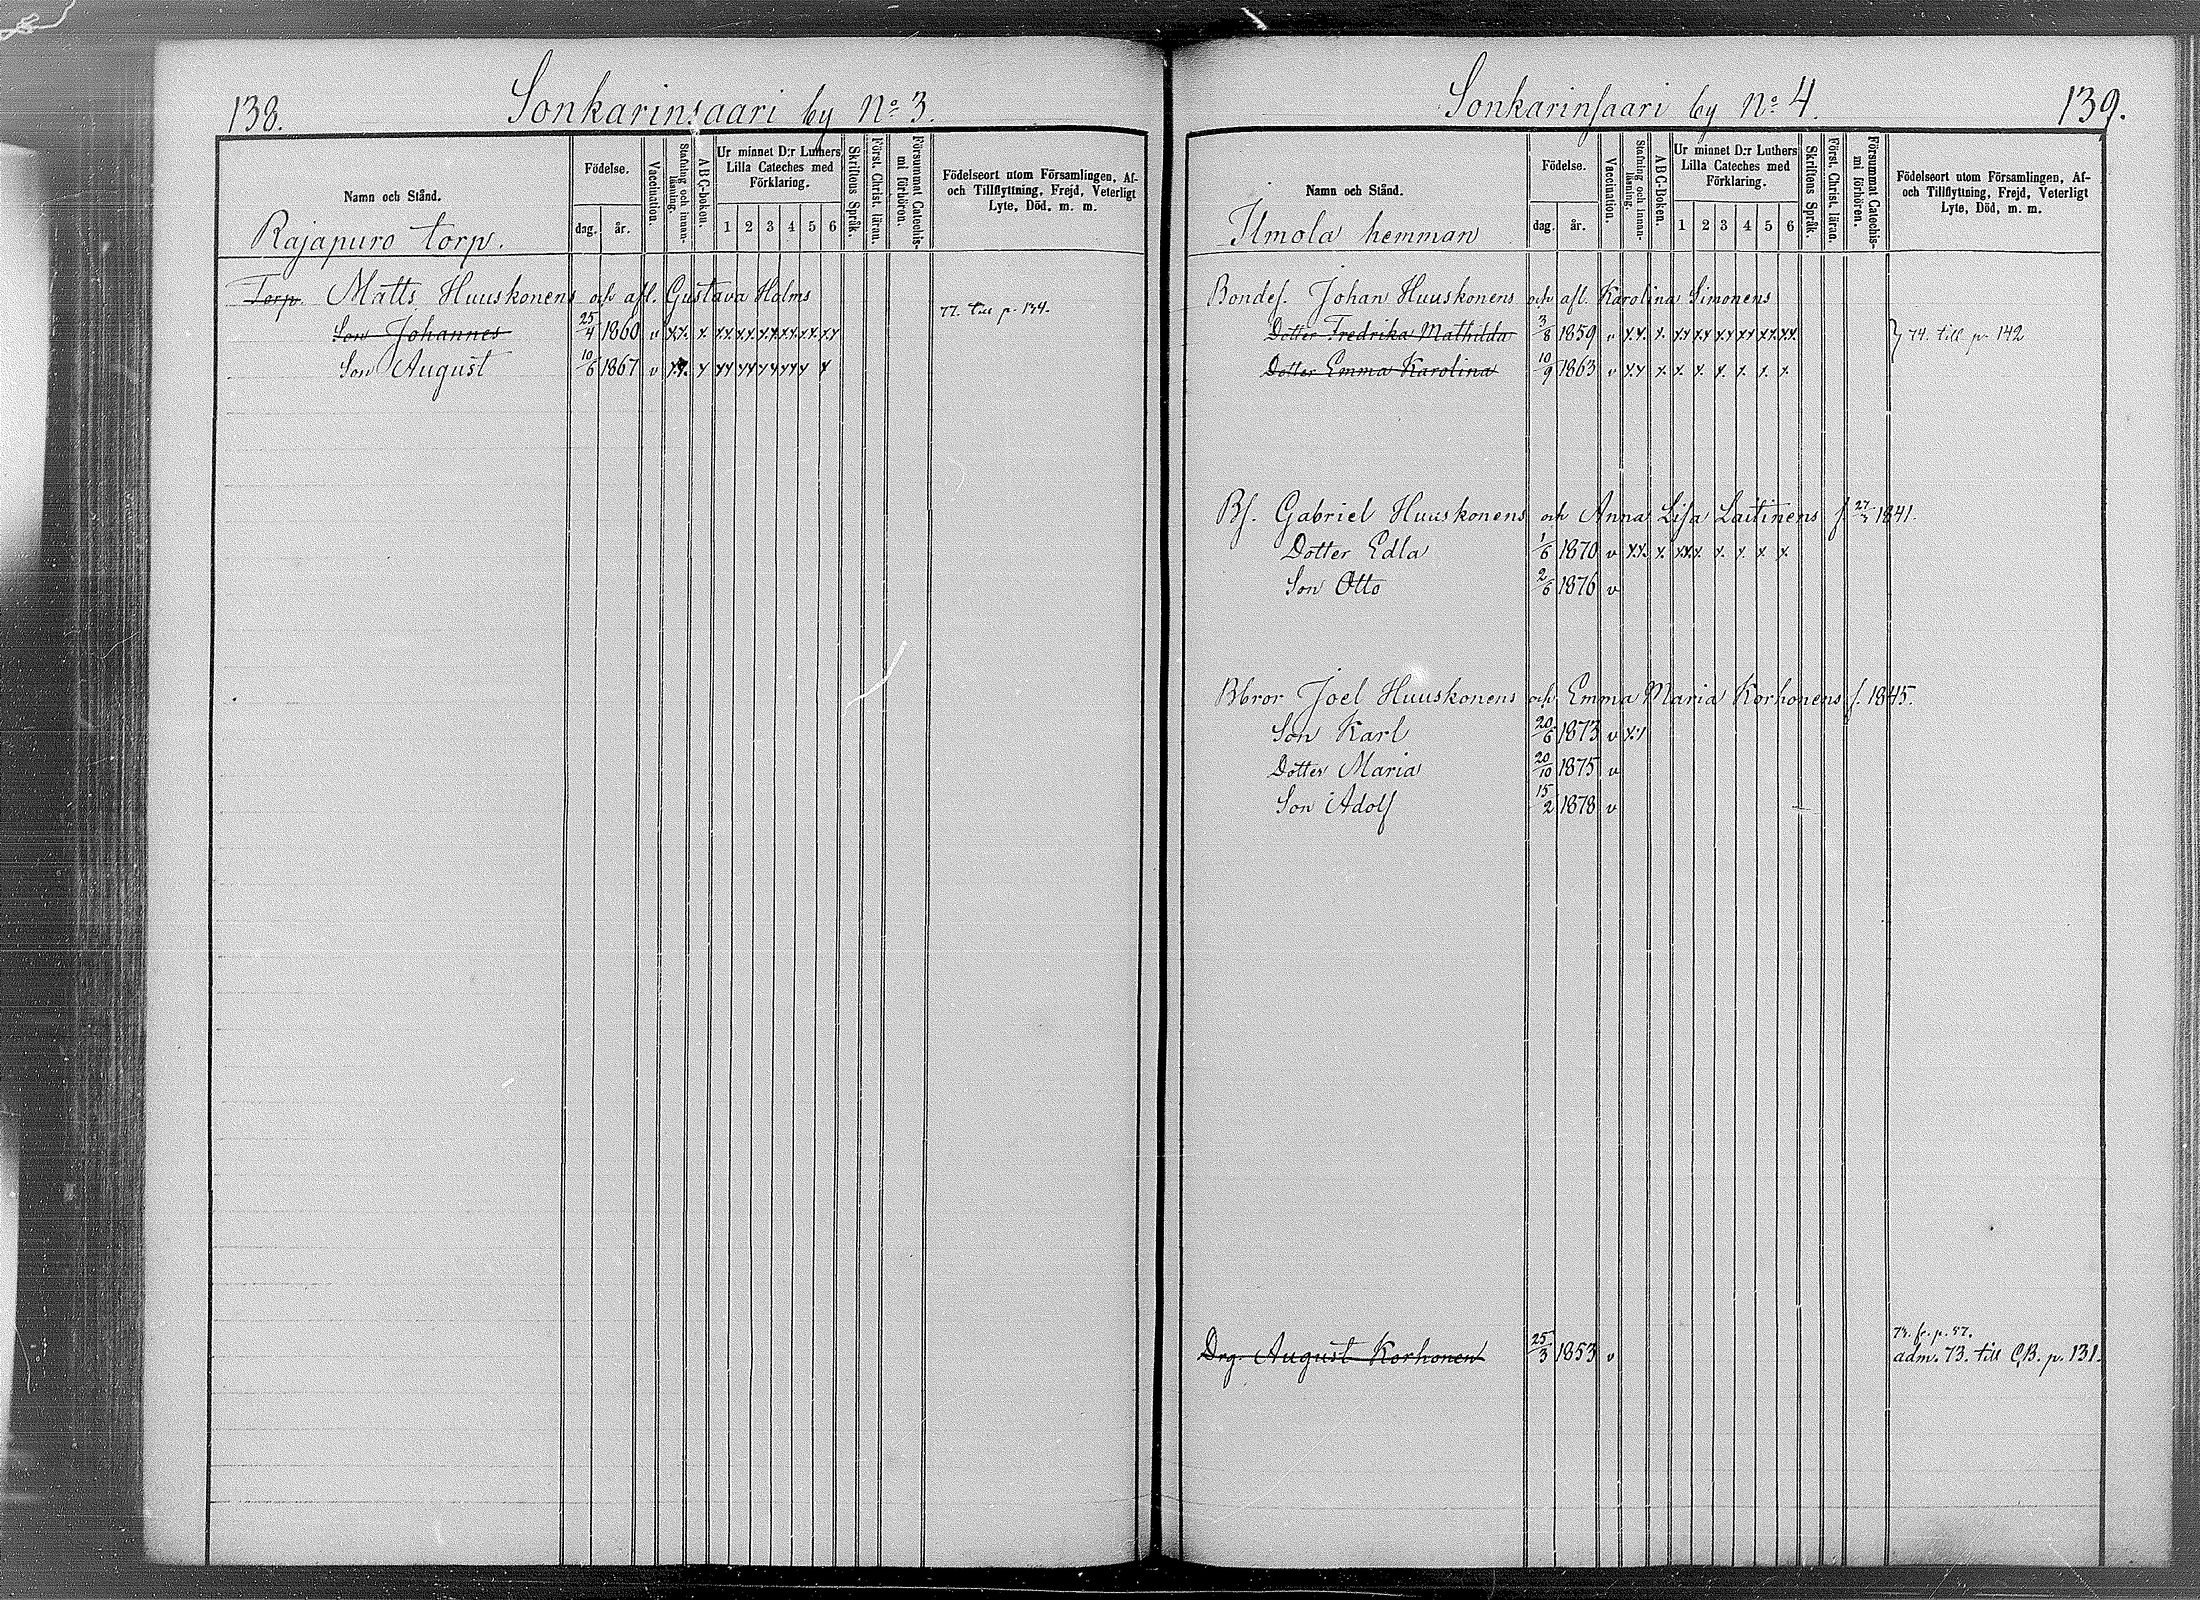 138. Sonkarinsaari by No 3.
Namn och Stånd.
Födelse.
dag. år.
Vaccination.
Stafning och innanläsning.
A B C-boken.
Ur minnet D:r Luthers Lilla Cateches med Förklaring.
1 2 3 4 5 6
Skriftens Språk.
Först. Christ. läran.
Försummat Catechismi förhören.
Födelseort utom Församlingen, Af- och Tillflyttning, Frejd, Veterligt Lyte, Död, m. m.
Rajapuro torp.
Torp. Matts Huuskonens och afl. Gustava Holms
Son Johannes 25/4 1860 v 77. till p. 134.
Son August 10/6 1867 v
Sonkarinsaari by No 4. 139.
Namn och Stånd.
Födelse.
dag. år.
Vaccination.
Stafning och innanläsning.
A B C-boken.
Ur minnet D:r Luthers Lilla Cateches med Förklaring.
1 2 3 4 5 6
Skriftens Språk.
Först. Christ. läran.
Försummat Catechismi förhören.
Födelseort utom Församlingen, Af- och Tillflyttning, Frejd, Veterligt Lyte, Död, m. m.
Ilmola hemman
Bondes. Johan Huuskonens och afl. Karolina Simonens
Dotter Fredrika Mathilda 3/8 1859 v 74. till p. 142
Dotter Emma Karolina 10/9 1863 v
Bs. Gabriel Huuskonens och Anna Lisa Laitinens f. 1841.
Dotter Edla 1/6 1870 v
Son Otto 2/6 1876 v
Bbror Joel Huuskonens och Emma Maria Korhonens f. 1845.
Son Karl 20/6 1873 v
Dotter Maria 20/10 1875 v
Son Adolf 15/2 1878 v
Drg. August Korhonen 25/3 1853 v
fr. p. 57.
adm. 73. till C.B. p. 131.